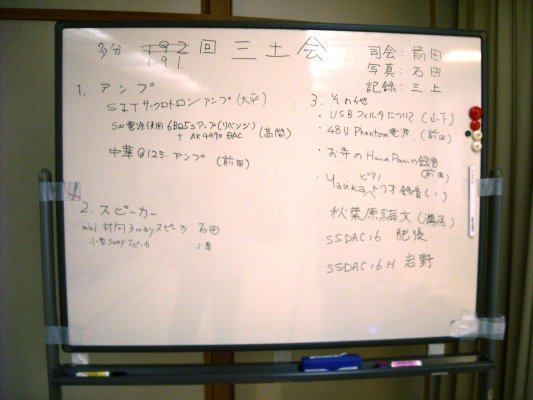 多分 192 回 三土会
191
司会: 前田
写真: 石田
記録: 三上
1. アンプ
SITサークロトロンアンプ (大平)
SW電源使用 6BQ5sアンプ(リベンジ)
+ AK4490 DAC (高間)
中華@125-アンプ (前田)
2. スピーカー
mini 対向3wayスピーカ 石田
小型3wayスピーカ
3. その他
・USBフィルタについて (山下)
・48V Phantom電源 (前田)
・お寺のHandPanの録音
(前田)
・ピアノ
トリオ録音 (〃)
秋葉原論文
・SSDAC16 肥後
・SSDAC16H 岩野